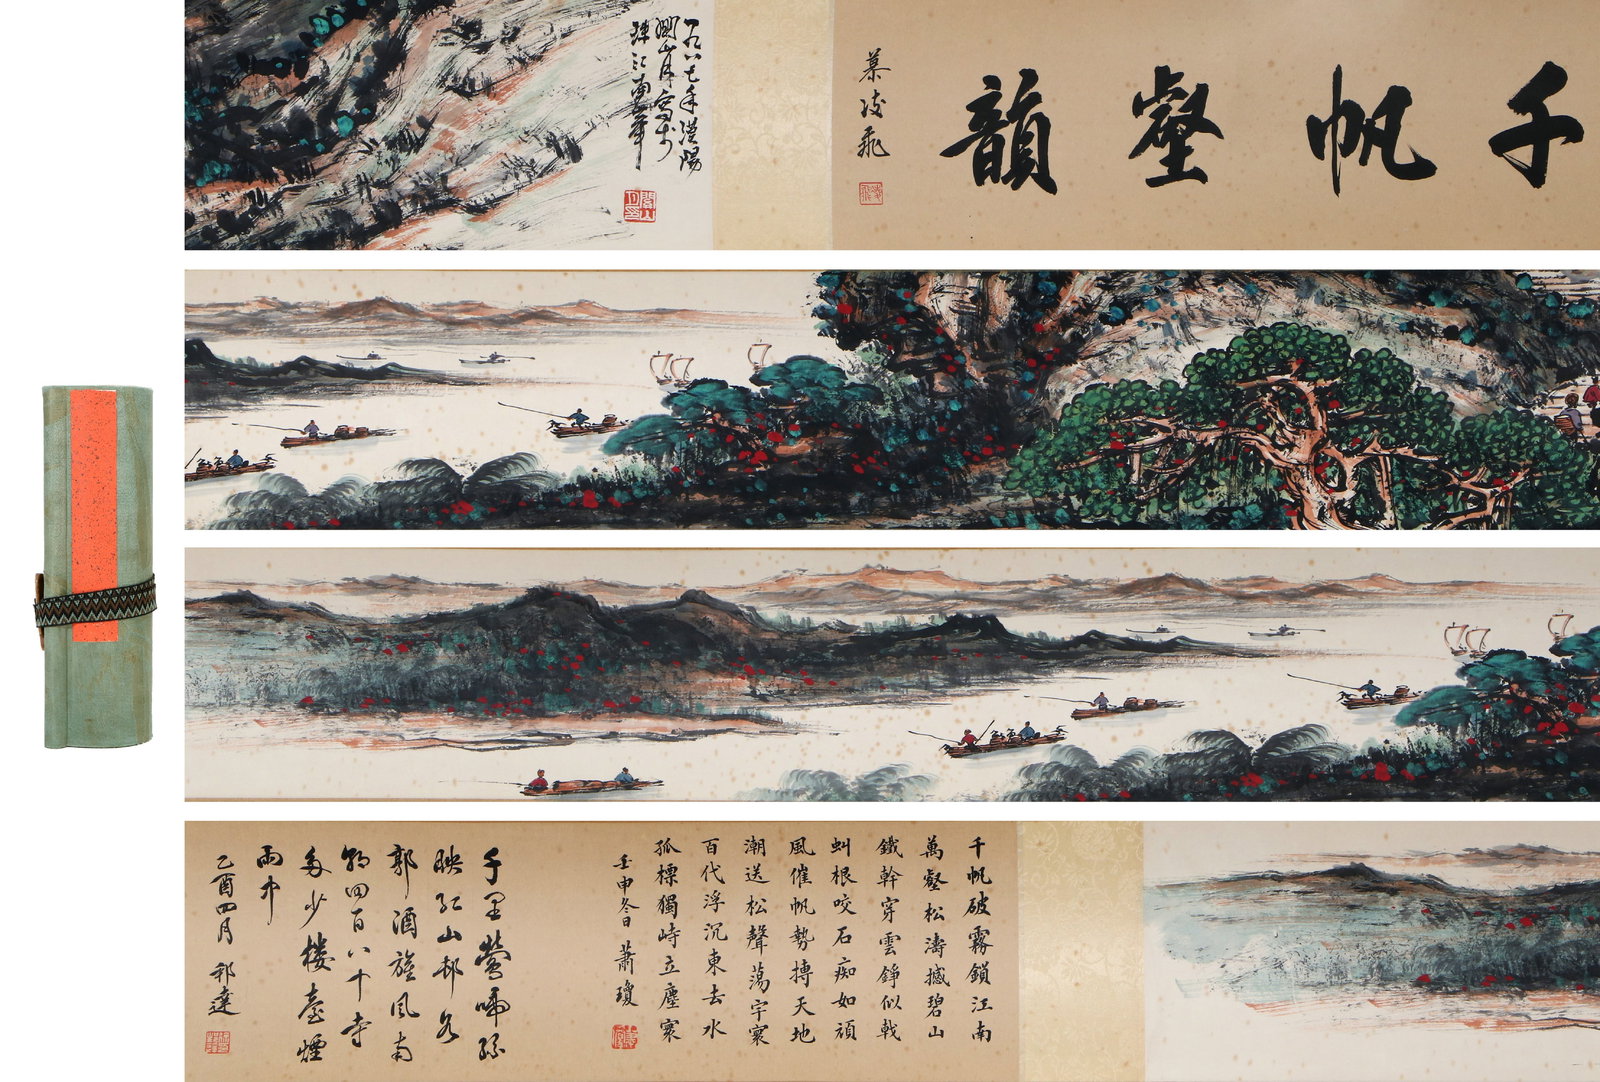 千帆壑韻
慕凌飛
一九八七年漠陽
關山月寫於
珠江南岸
關山月印
千帆破霧鎖江南
萬壑松濤撼碧山
鐵幹穿雲錚似戟
虯根咬石痴如頑
風催帆勢搏天地
潮送松聲蕩宇寰
百代浮沉東去水
孤標獨峙立塵寰
壬申冬日 蕭瓊
千里鶯啼綠
映紅山邨水
郭酒旗風南
朝四百八十寺
多少樓臺煙
雨中
乙酉四月 邦達